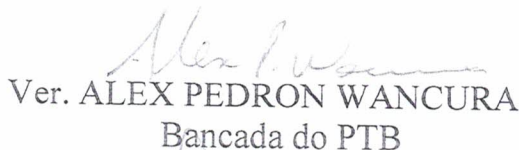 Alex P. Wancura
Ver. ALEX PEDRON WANCURA
Bancada do PTB